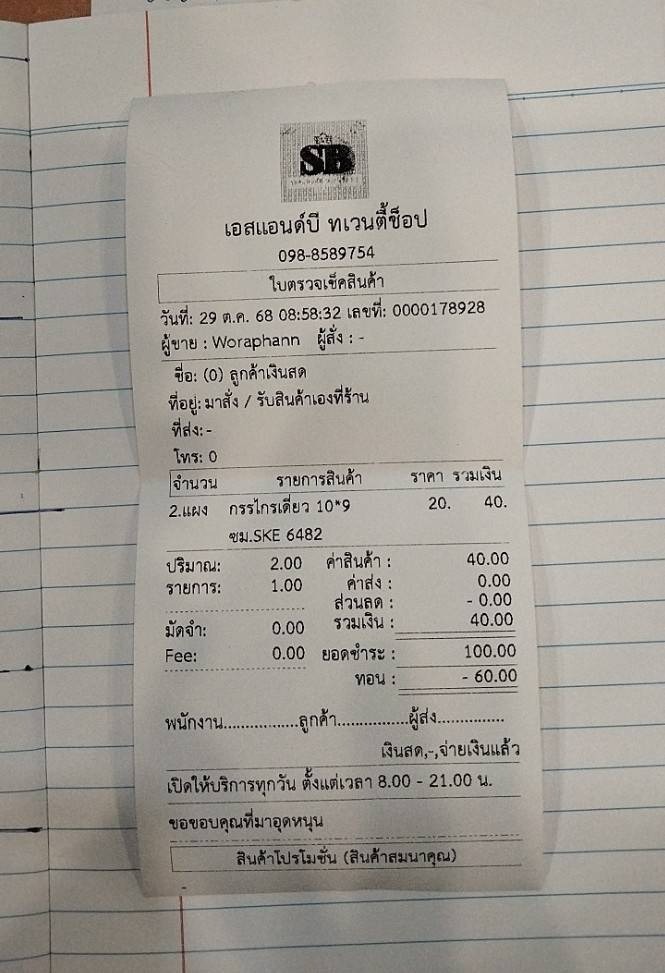 SB
เอสแอนด์บี ทเวนตี้ช็อป
098-8589754
ใบตรวจเช็คสินค้า
วันที่: 29 ต.ค. 68 08:58:32 เลขที่: 0000178928
ผู้ขาย : Woraphann ผู้สั่ง : -
ชื่อ: (0) ลูกค้าเงินสด
ที่อยู่: มาสั่ง / รับสินค้าเองที่ร้าน
ที่ส่ง:-
โทร: 0
จำนวน รายการสินค้า ราคา รวมเงิน
2.แผง กรรไกรเดี่ยว 10*9 20. 40.
ซม.SKE 6482
ปริมาณ: 2.00 ค่าสินค้า : 40.00
รายการ: 1.00 ค่าส่ง : 0.00
ส่วนลด : - 0.00
มัดจำ: 0.00 รวมเงิน : 40.00
Fee: 0.00 ยอดชำระ : 100.00
ทอน : - 60.00
พนักงาน.................ลูกค้า................ผู้ส่ง...............
เงินสด,-,จ่ายเงินแล้ว
เปิดให้บริการทุกวัน ตั้งแต่เวลา 8.00 - 21.00 น.
ขอขอบคุณที่มาอุดหนุน
สินค้าโปรโมชั่น (สินค้าสมนาคุณ)